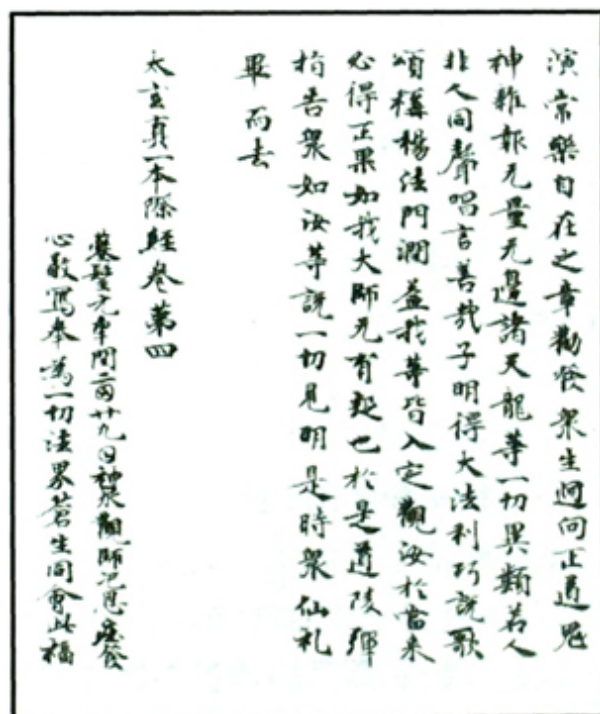 演常樂自在之章勸發衆生迴向正道鬼
神雜報无量无邊諸天龍等一切異類若人
非人同聲唱言善哉子明得大法利巧說歌
頌稱楊法門潤益我等皆入定觀汝於當來
必得正果如我大師无有疑也於是道陵彈
指告衆如汝等說一切見明是時衆仙礼
畢而去
太玄真一本際經卷第四
證聖元年閏二月廿九日神泉觀師氾思莊發
心敬寫奉爲一切法界蒼生同會此福